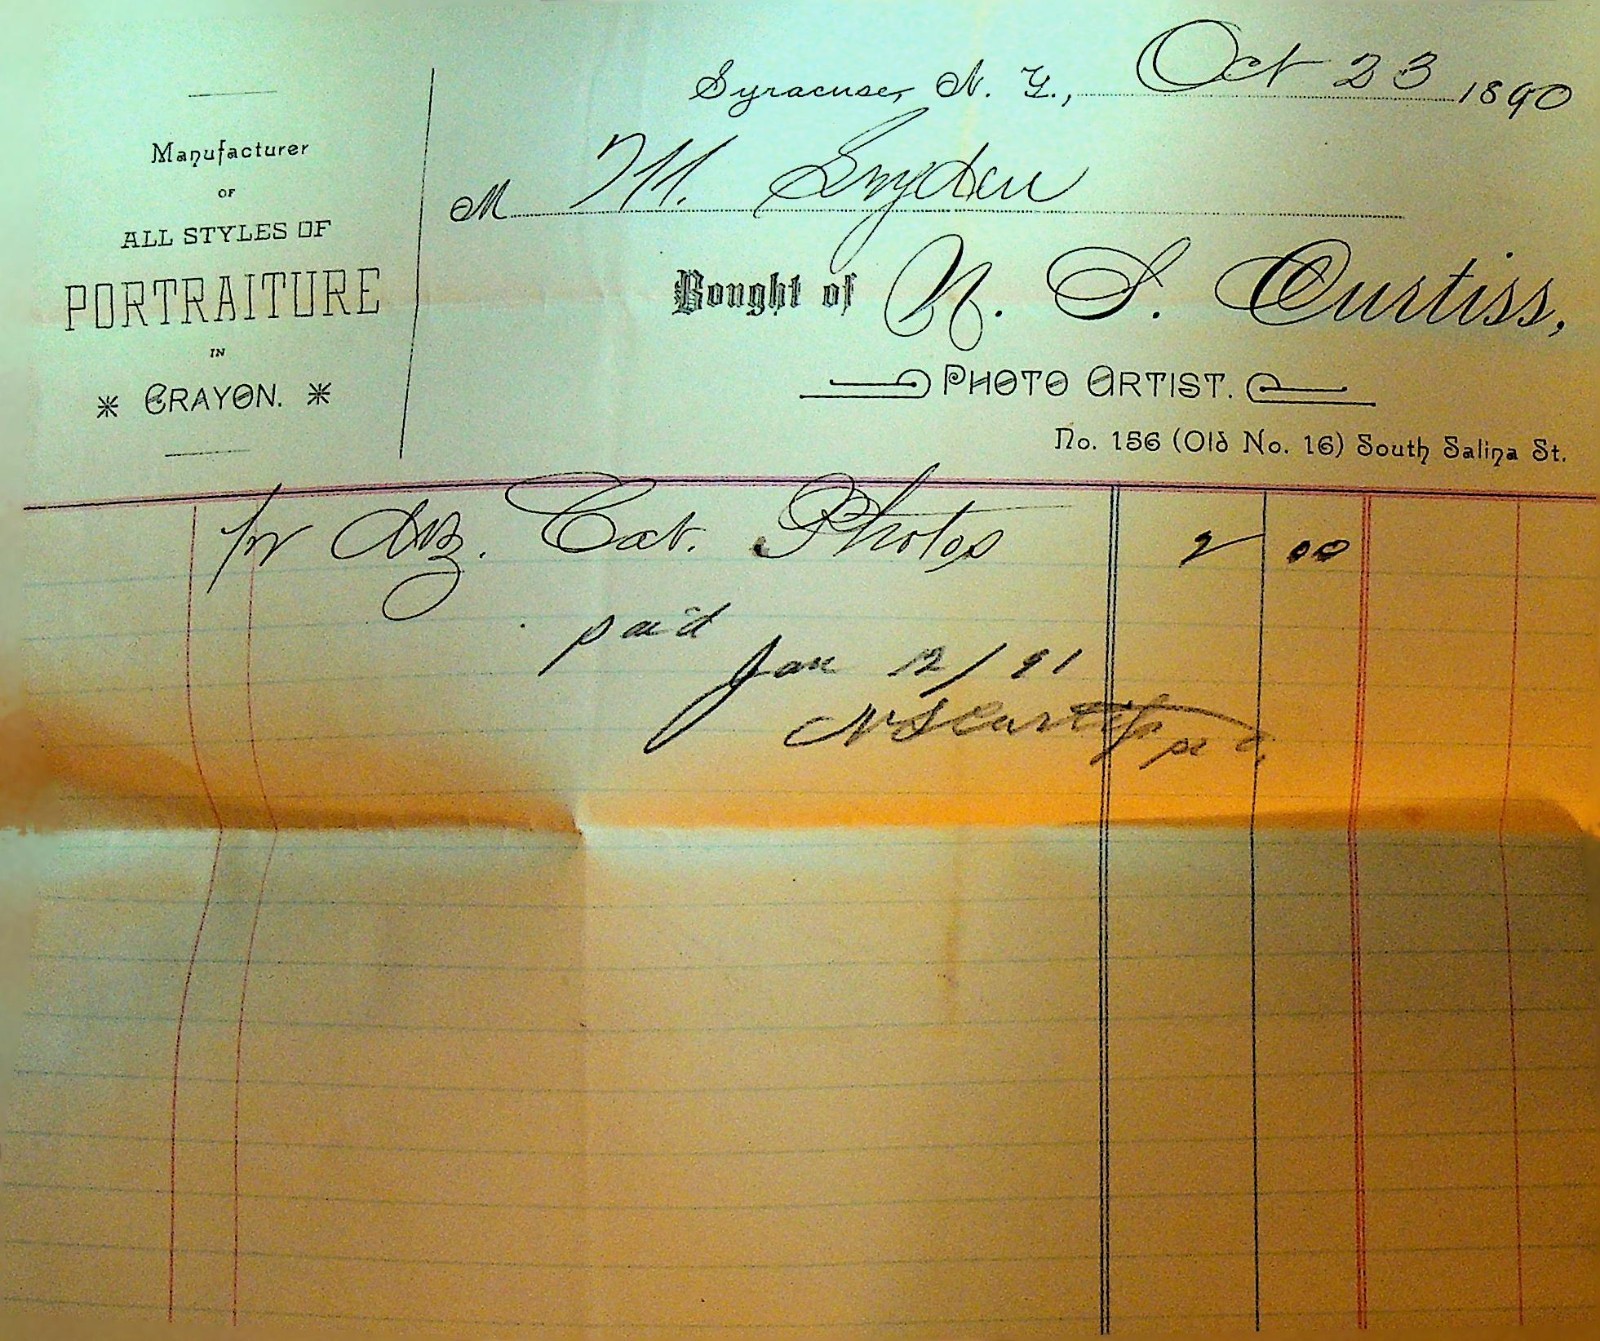 Manufacturer
OF
ALL STYLES OF
PORTRAITURE
IN
* CRAYON. *
Syracuse, N. Y., Oct 23 1890
M M. Snyder
Bought of N. S. Curtiss,
PHOTO ARTIST.
No. 156 (Old No. 16) South Salina St.
Dz. Cab. Photos 2 00
paid
Jan 12/91
N S Curtiss